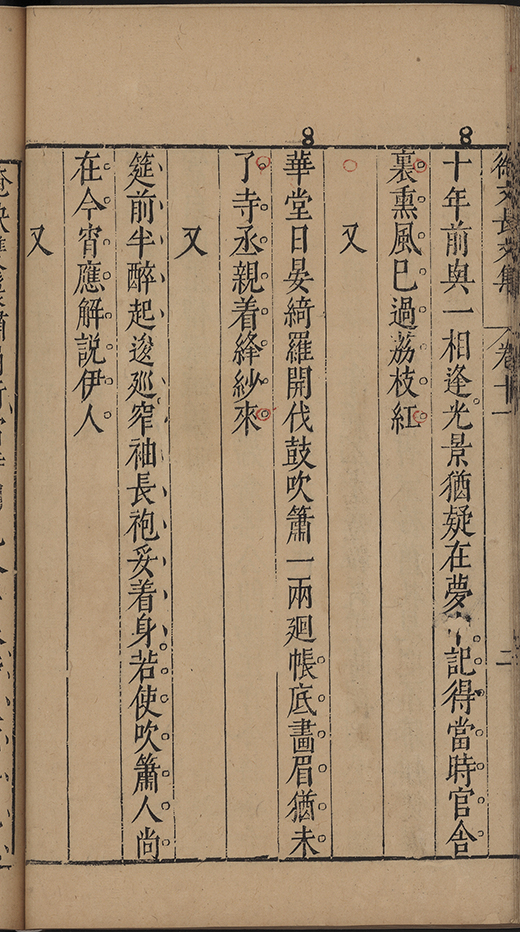 徐文長文集 卷十一 二
十年前與一相逢光景猶疑在夢中記得當時官舍
裏熏風已過荔枝紅
又
華堂日晏綺羅開伐鼓吹簫一兩廻帳底畵眉猶未
了寺丞親着絳紗來
又
筵前半醉起逡廵窄袖長袍妥着身若使吹簫人尚
在今宵應解說伊人
又